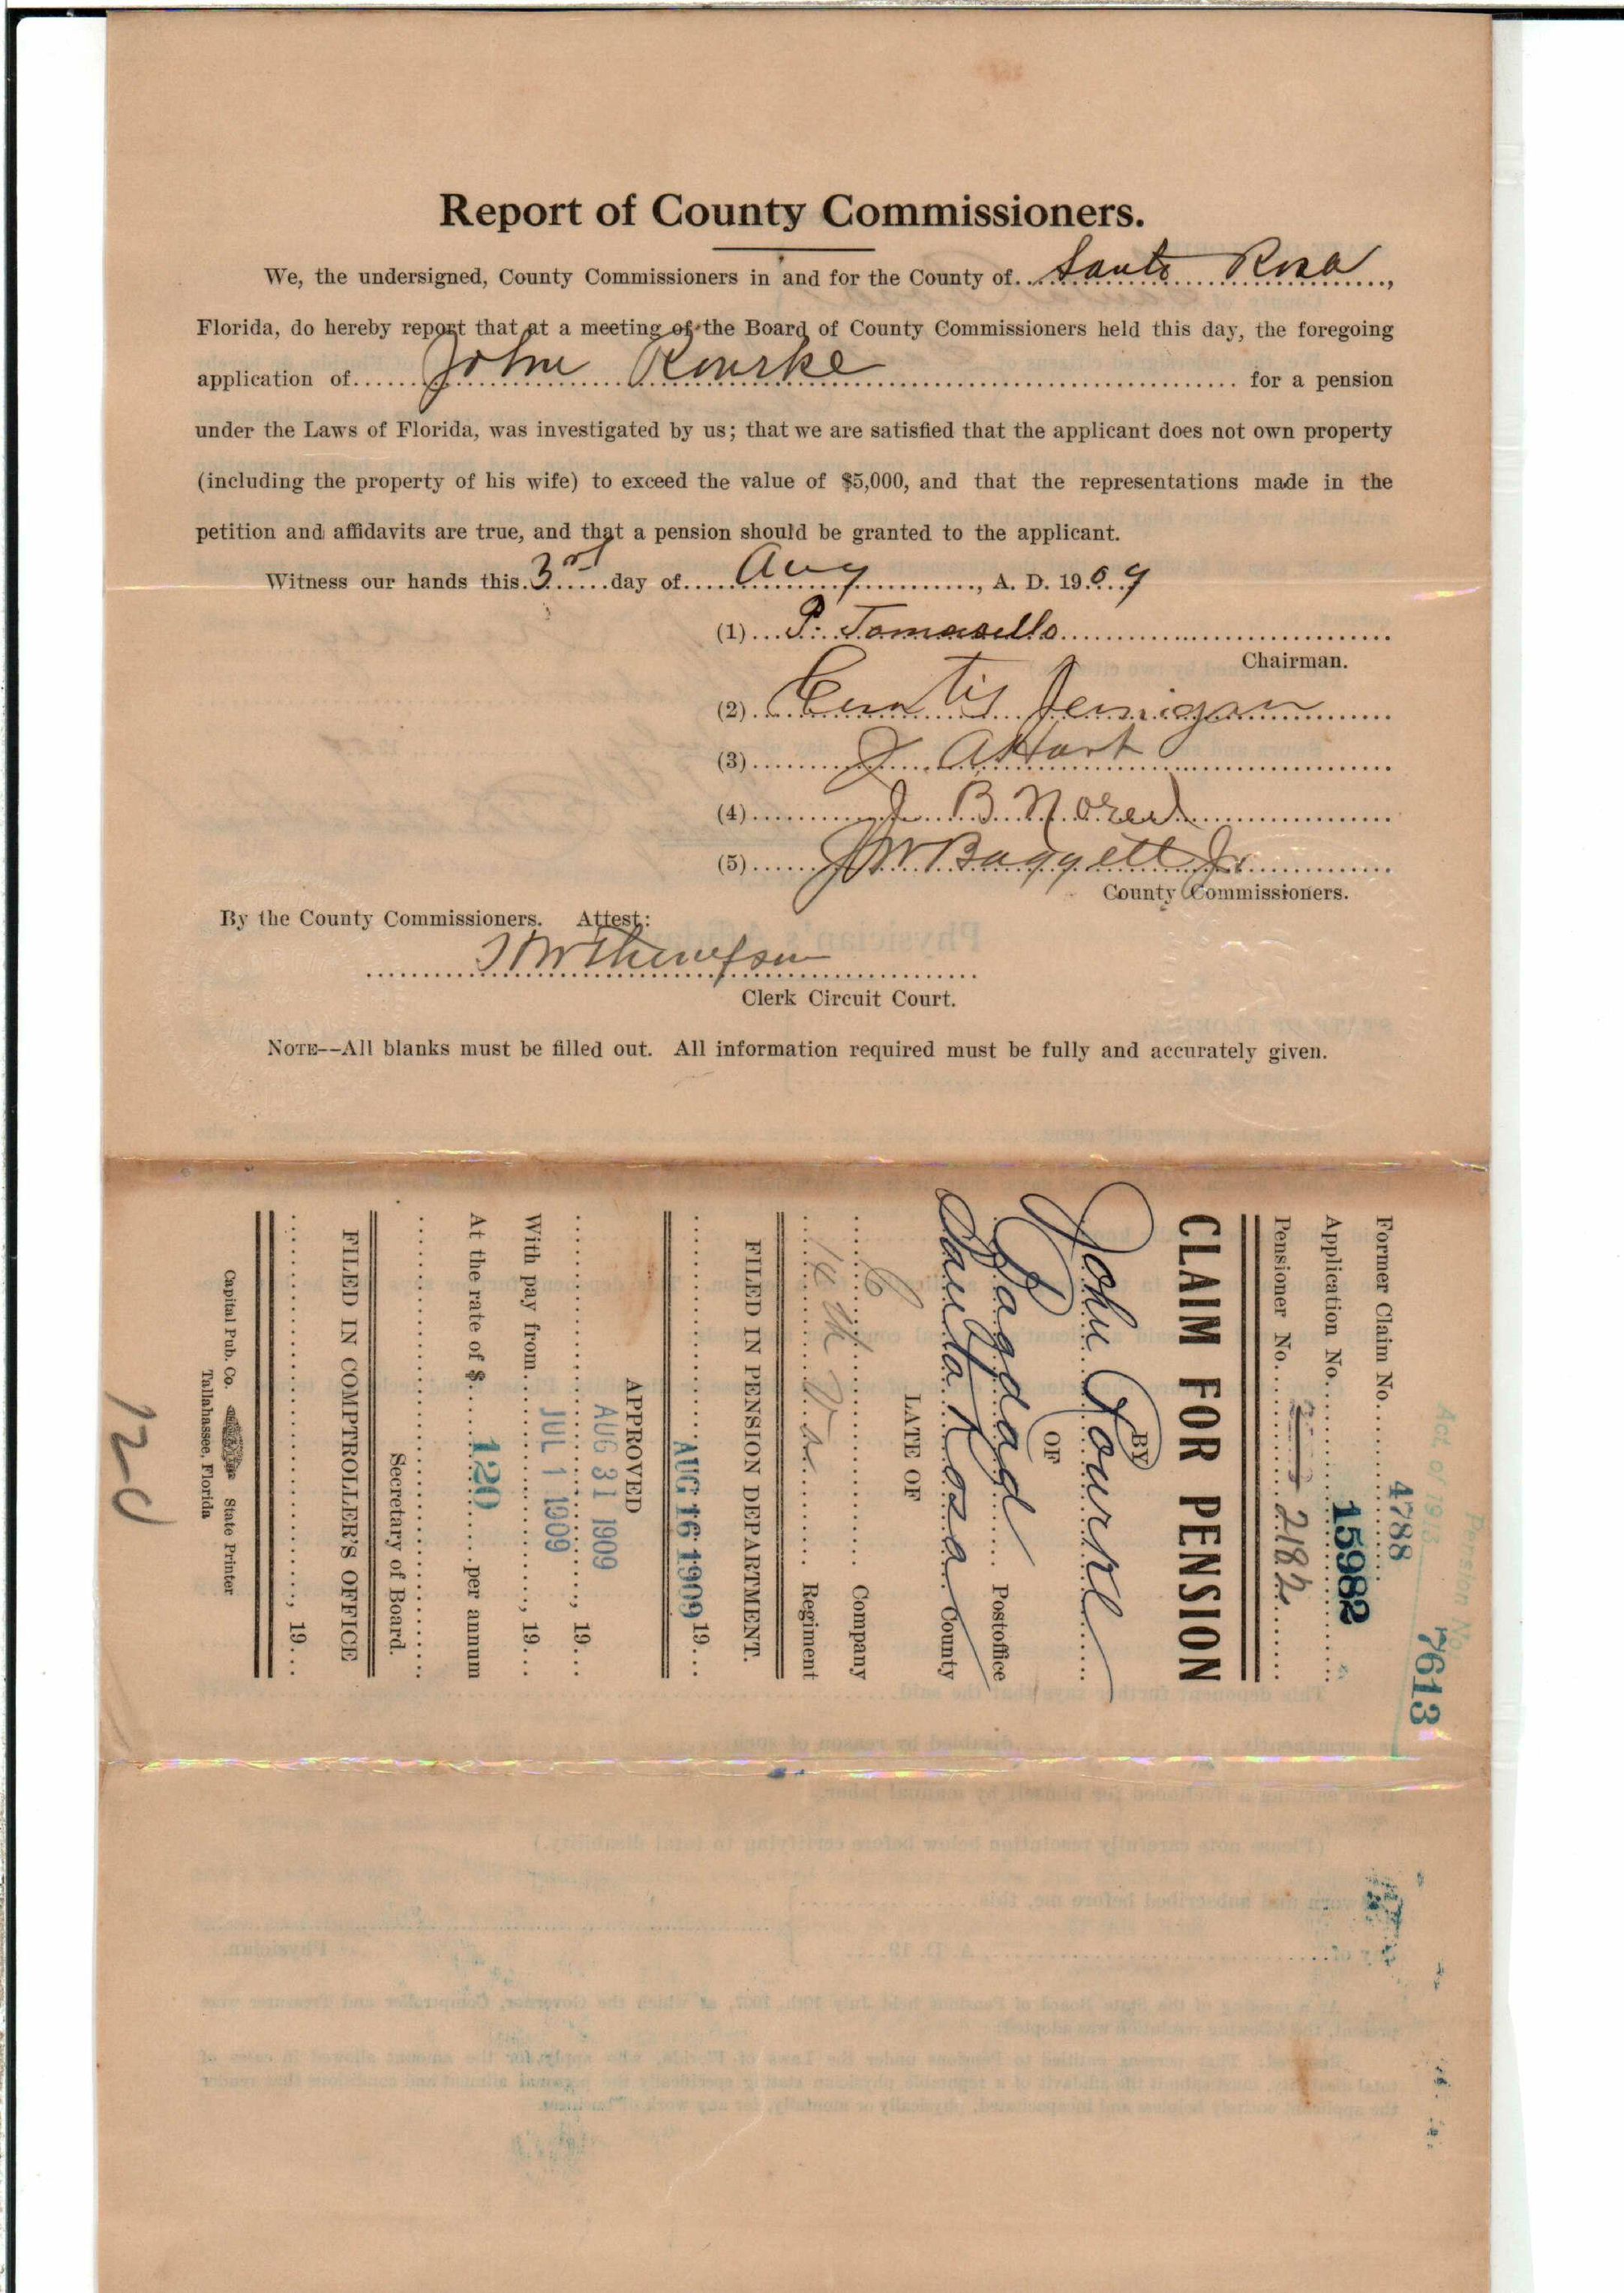 Report of County Commissioners.
We, the undersigned, County Commissioners in and for the County of Santa Rosa,
Florida, do hereby report that at a meeting of the Board of County Commissioners held this day, the foregoing
application of John Rourke for a pension
under the Laws of Florida, was investigated by us; that we are satisfied that the applicant does not own property
(including the property of his wife) to exceed the value of $5,000, and that the representations made in the
petition and affidavits are true, and that a pension should be granted to the applicant.
Witness our hands this 3rd day of Aug, A. D. 1909
(1) P. Tomasello
Chairman.
(2) Curtis Jernigan
(3) J A Hart
(4) J B Nored
(5) J W Baggett Jr
County Commissioners.
By the County Commissioners. Attest:
Clerk Circuit Court.
NOTE--All blanks must be filled out. All information required must be fully and accurately given.
Pension No. 7613
Act of 1913
Former Claim No. 4788
Application No. 15982
Pensioner No. 2182
CLAIM FOR PENSION
BY
John Rourke
OF
Bagdad Postoffice
Santa Rosa County
LATE OF
C Company
Regiment
FILED IN PENSION DEPARTMENT.
AUG 16 1909 19
APPROVED
AUG 31 1909, 19
With pay from JUL 1 1909, 19
At the rate of $ 120 per annum
Secretary of Board.
FILED IN COMPTROLLER'S OFFICE
, 19
Capital Pub. Co. State Printer
Tallahassee, Florida
120